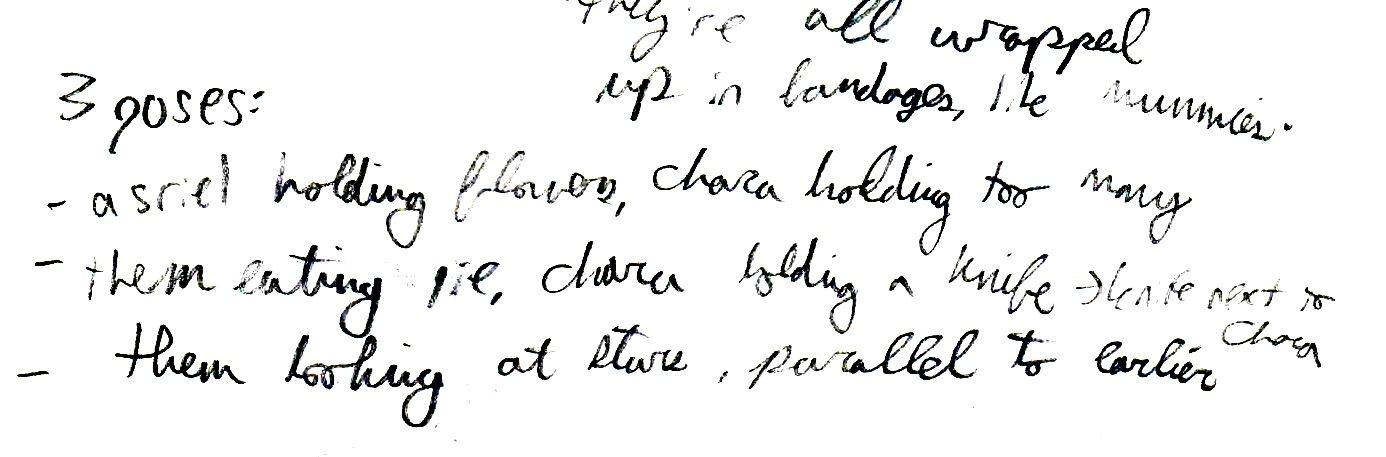 they're all wrapped
up in bandages, like mummies.
3 poses:
- asriel holding flowers, chara holding too many
- them eating pie, chara holding a knife → knife next to
chara
- them looking at stars, parallel to earlier